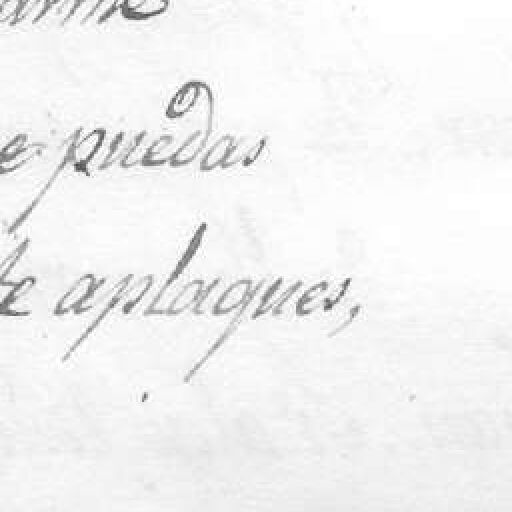 e puedas
te aplaques,